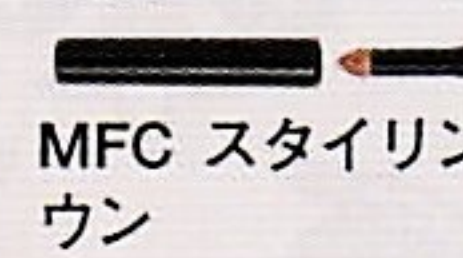 MFC スタイリン
ウン